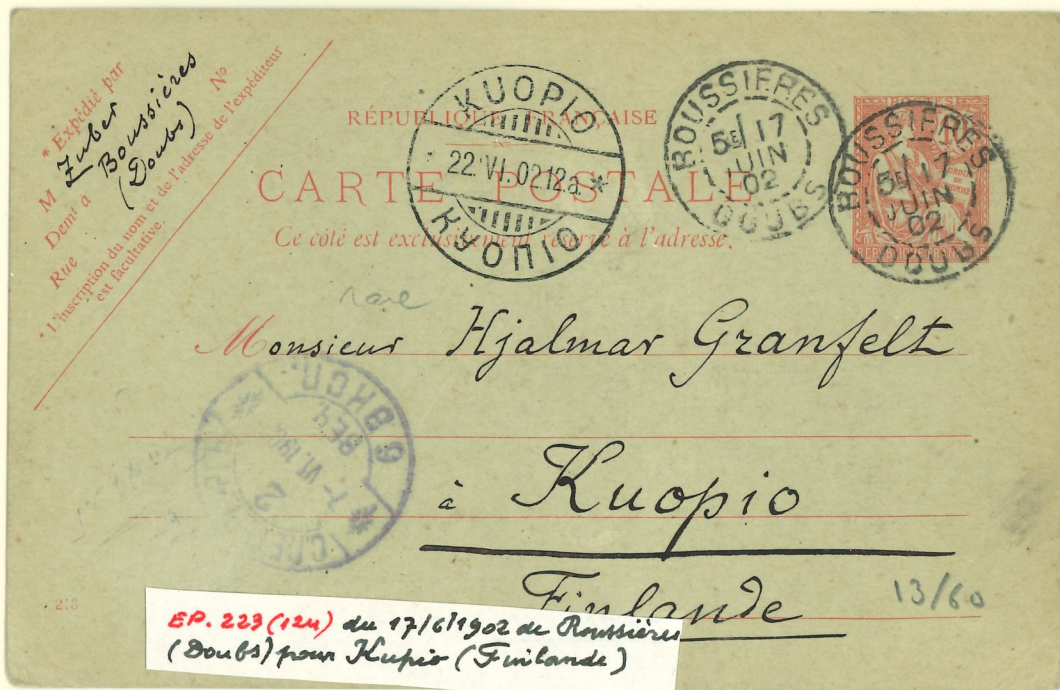 * Expédié par
M Zuber
Demt à Boussières
(Doubs)
Rue N°
* L'inscription du nom et de l'adresse de l'expéditeur
est facultative.
RÉPUBLIQUE FRANÇAISE
CARTE POSTALE
Ce côté est exclusivement réservé à l'adresse.
KUOPIO
22.VI.02 12a.*
КУОПІО
BOUSSIERES
5E 17
JUIN
02
DOUBS
BOUSSIERES
5E 17
JUIN
02
DOUBS
rare
Monsieur Hjalmar Granfelt
à Kuopio
Finlande
6 ЭКСП.
VI.190
2
13/60
EP. 223 (124) du 17/6/1902 de Roussières
(Doubs) pour Kupio (Finlande)